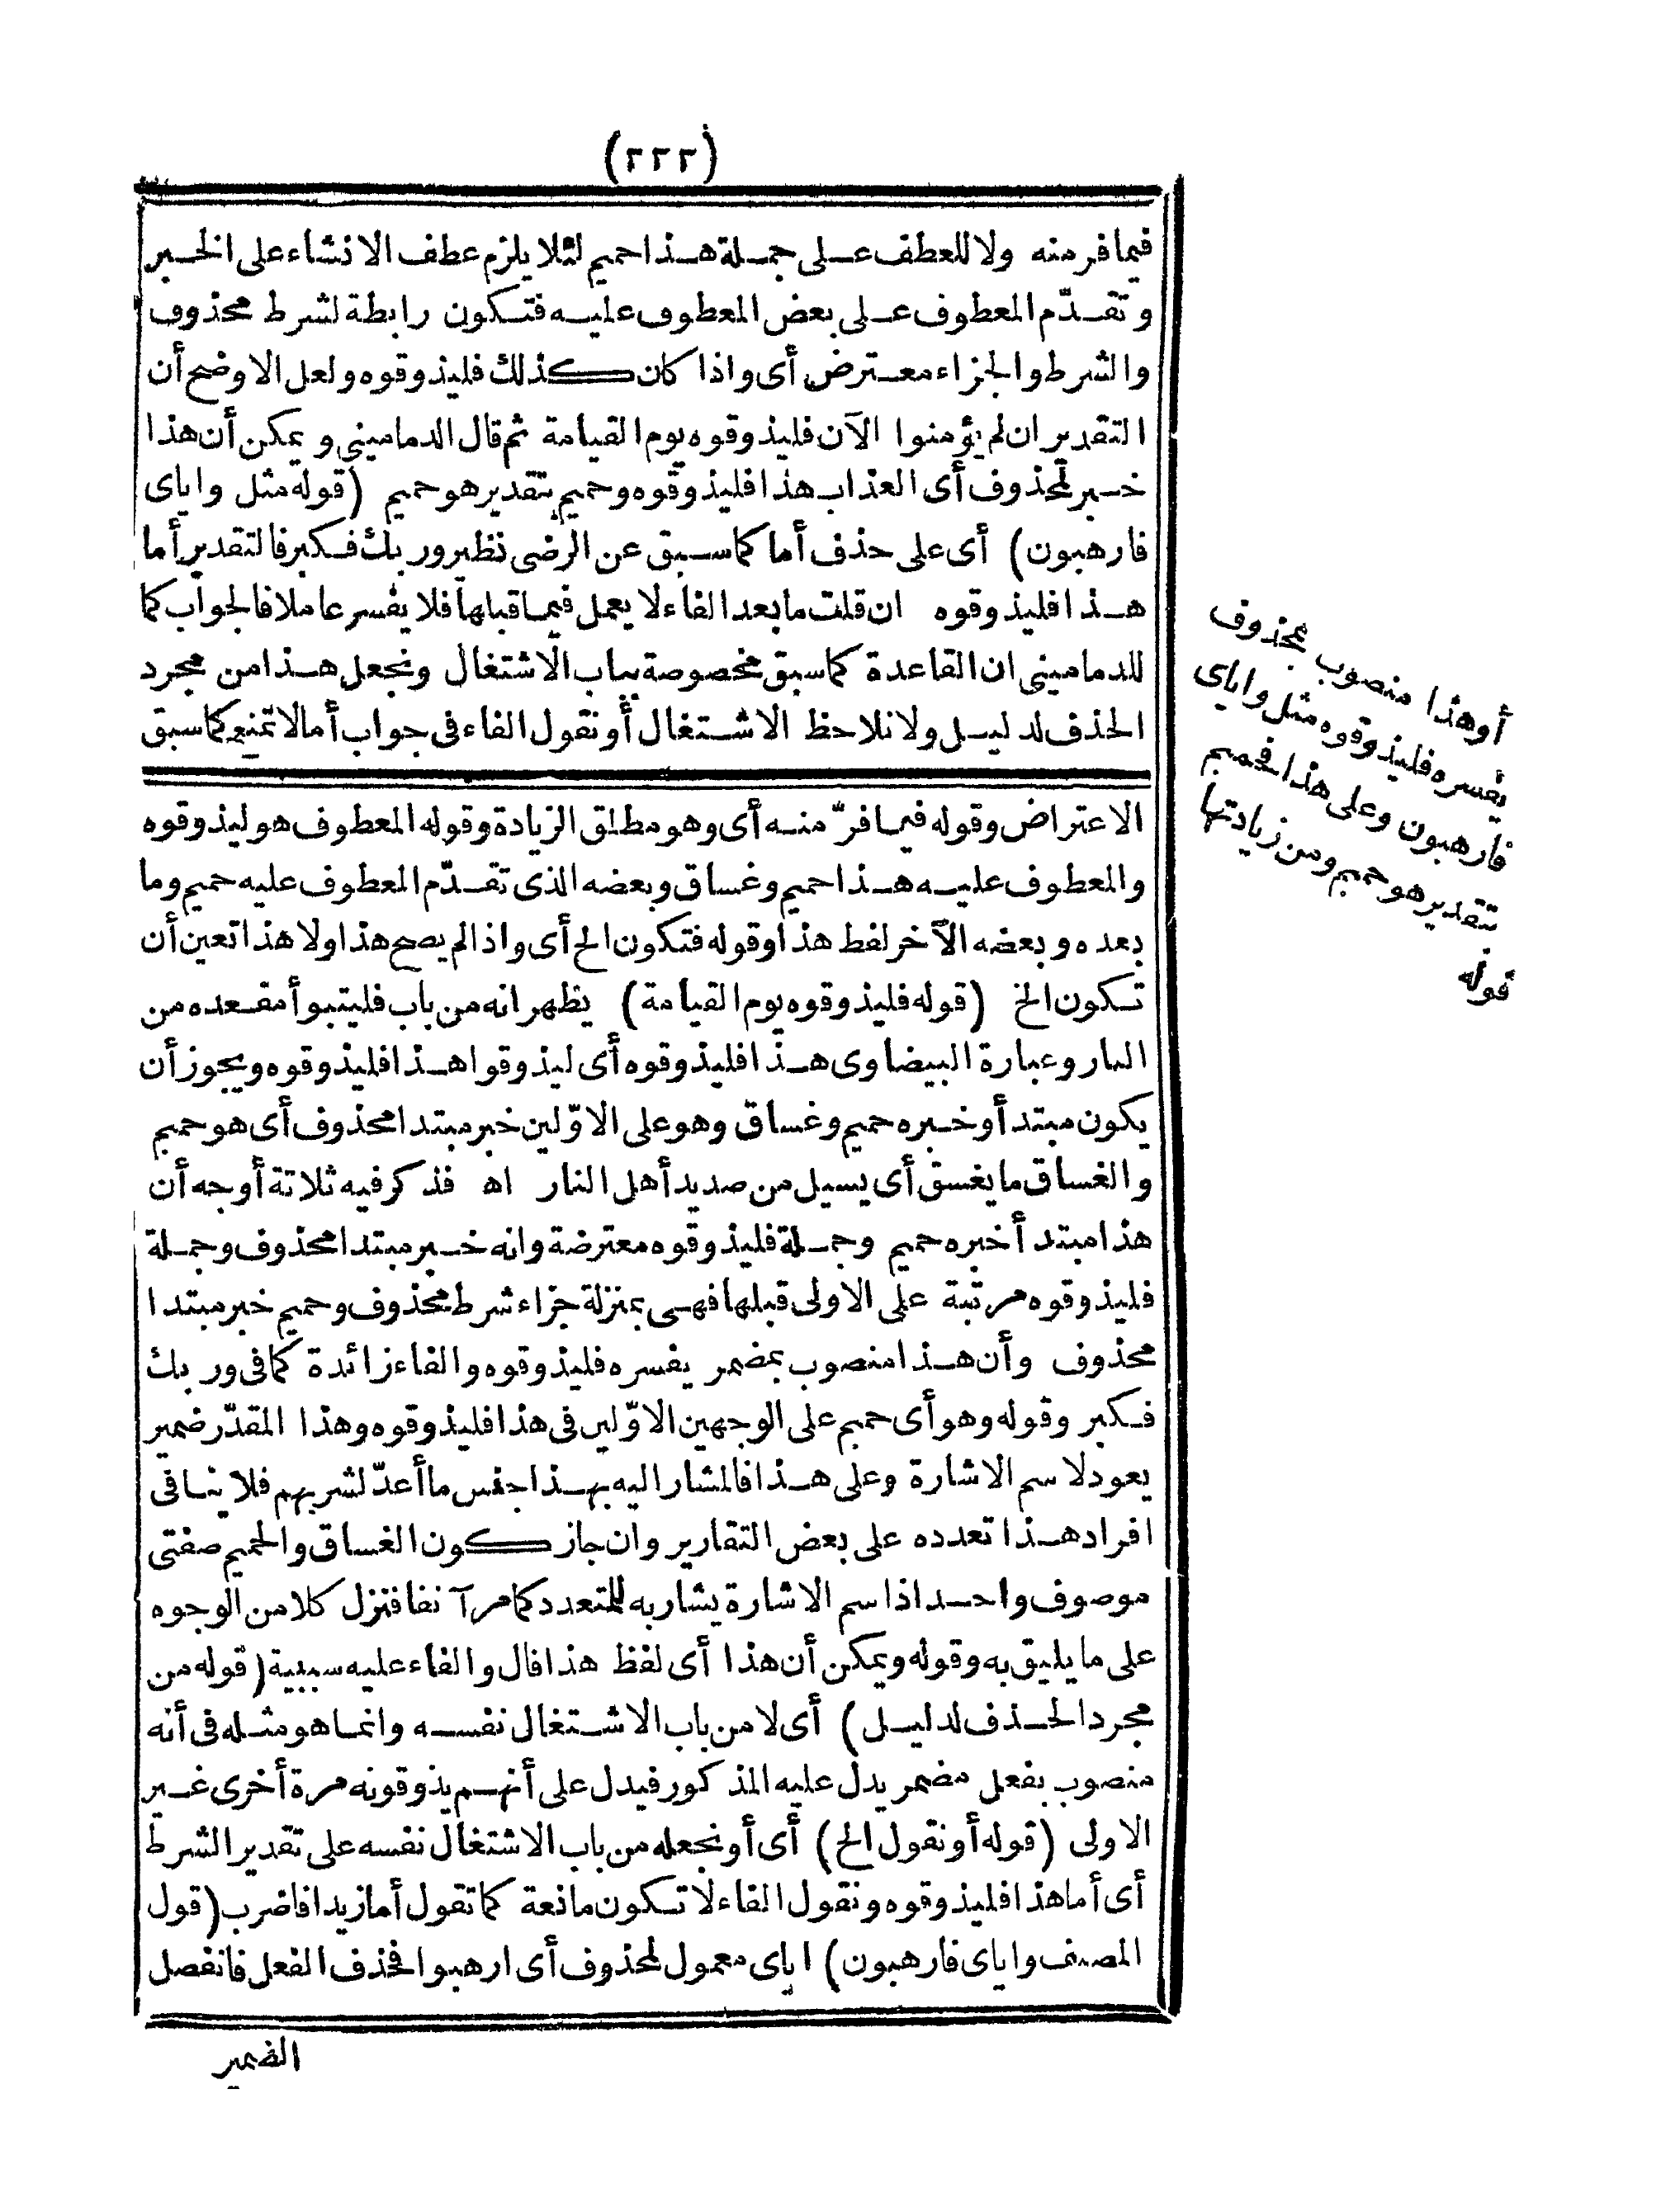 (٢٢٢)
فيما فر منه ولا للعطف على جملة هذا حميم لئلا يلزم عطف الانشاء على الخبر
وتقدّم المعطوف على بعض المعطوف عليه فتكون رابطة لشرط محذوف
والشرط والجزاء معترض أى واذا كان كذلك فليذوقوه ولعل الاوضح أن
التقدير ان لم يؤمنوا الآن فليذوقوه يوم القيامة ثم قال الدمامينى ويمكن أن هذا
خبر لمحذوف أى العذاب هذا فليذوقوه وحميم بتقدير هو حميم (قوله مثل واياى
فارهبون) أى على حذف أما كما سبق عن الرضى نظير وربك فكبر فالتقدير أما
هذا فليذوقوه ان قلت ما بعد الفاء لا يعمل فيما قبلها فلا يفسر عاملا فالجواب كما
للدمامينى ان القاعدة كما سبق مخصوصة بباب الاشتغال ونجعل هذا من مجرد
الحذف لدليل ولا نلاحظ الاشتغال أو نقول الفاء فى جواب أما لا تمنع كما سبق
أو هذا منصوب بمحذوف
يفسره فليذوقوه مثل واياى
فارهبون وعلى هذا فحميم
بتقدير هو حميم ومن زيادتها
قوله
الاعتراض وقوله فيما فرّ منه أى وهو مطلق الزيادة وقوله المعطوف هو ليذوقوه
والمعطوف عليه هذا حميم وغساق وبعضه الذى تقدّم المعطوف عليه حميم وما
بعده وبعضه الآخر لفظ هذا وقوله فتكون الخ أى واذا لم يصح هذا ولا هذا تعين أن
تكون الخ (قوله فليذوقوه يوم القيامة) يظهر انه من باب فليتبوأ مقعده من
النار وعبارة البيضاوى هذا فليذوقوه أى ليذوقوا هذا فليذوقوه ويجوز أن
يكون مبتدأ وخبره حميم وغساق وهو على الاوّلين خبر مبتدا محذوف أى هو حميم
والغساق ما يغسق أى يسيل من صديد أهل النار اه فذكر فيه ثلاثة أوجه أن
هذا مبتدأ خبره حميم وجملة فليذوقوه معترضة وانه خبر مبتدا محذوف وجملة
فليذوقوه مرتبة على الاولى قبلها فهى بمنزلة جزاء شرط محذوف وحميم خبر مبتدا
محذوف وأن هذا منصوب بمضمر يفسره فليذوقوه والفاء زائدة كما فى وربك
فكبر وقوله وهو أى حميم على الوجهين الاوّلين فى هذا فليذوقوه وهذا المقدّر ضمير
يعود لاسم الاشارة وعلى هذا فالمشار اليه بهذا جنس ما أعدّ لشربهم فلا ينافى
افراد هذا تعدده على بعض التقارير وان جاز كون الغساق والحميم صفتى
موصوف واحد اذ اسم الاشارة يشار به للمتعدد كما مر آنفا فتنزل كلا من الوجوه
على ما يليق به وقوله ويمكن أن هذا أى لفظ هذا فال والفاء عليه سببية (قوله من
مجرد الحذف لدليل) أى لا من باب الاشتغال نفسه وانما هو مثله فى أنه
منصوب بفعل مضمر يدل عليه المذكور فيدل على أنهم يذوقونه مرة أخرى غير
الاولى (قوله أو نقول الخ) أى أو نجعله من باب الاشتغال نفسه على تقدير الشرط
أى أما هذا فليذوقوه ونقول الفاء لا تكون مانعة كما تقول أما زيدا فاضرب (قول
المصنف واياى فارهبون) اياى معمول لمحذوف أى ارهبوا فحذف الفعل فانفصل
الضمير